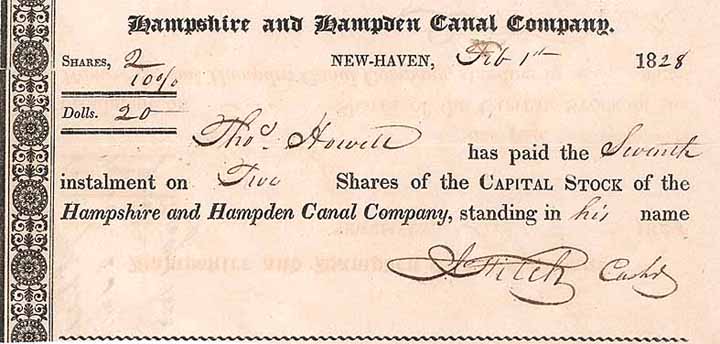 Hampshire and Hampden Canal Company.
SHARES, 2 NEW-HAVEN, Feb 1st 1828
10%
Dolls. 20
Thos. Howell has paid the Seventh
instalment on Two Shares of the CAPITAL STOCK of the
Hampshire and Hampden Canal Company, standing in his name
Fitch Cashr